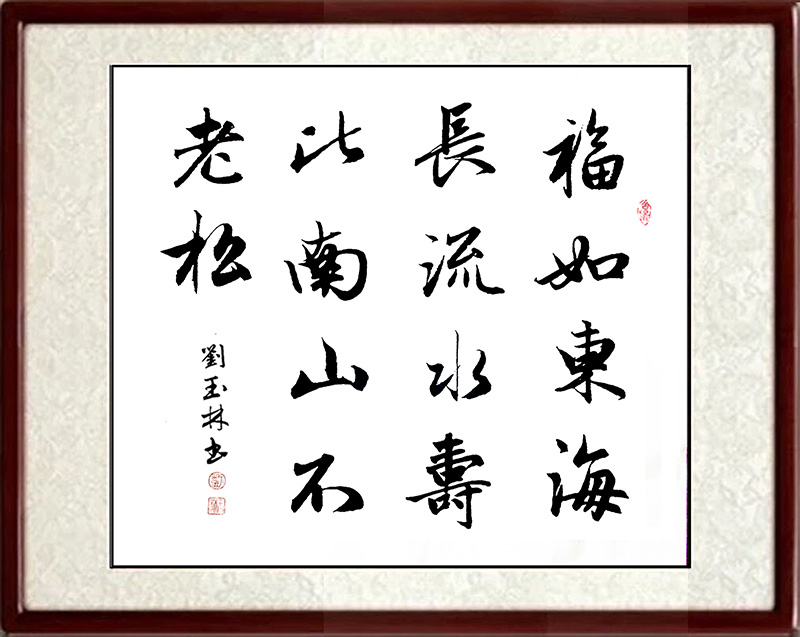 福如東海
長流水壽
比南山不
老松
劉玉林书